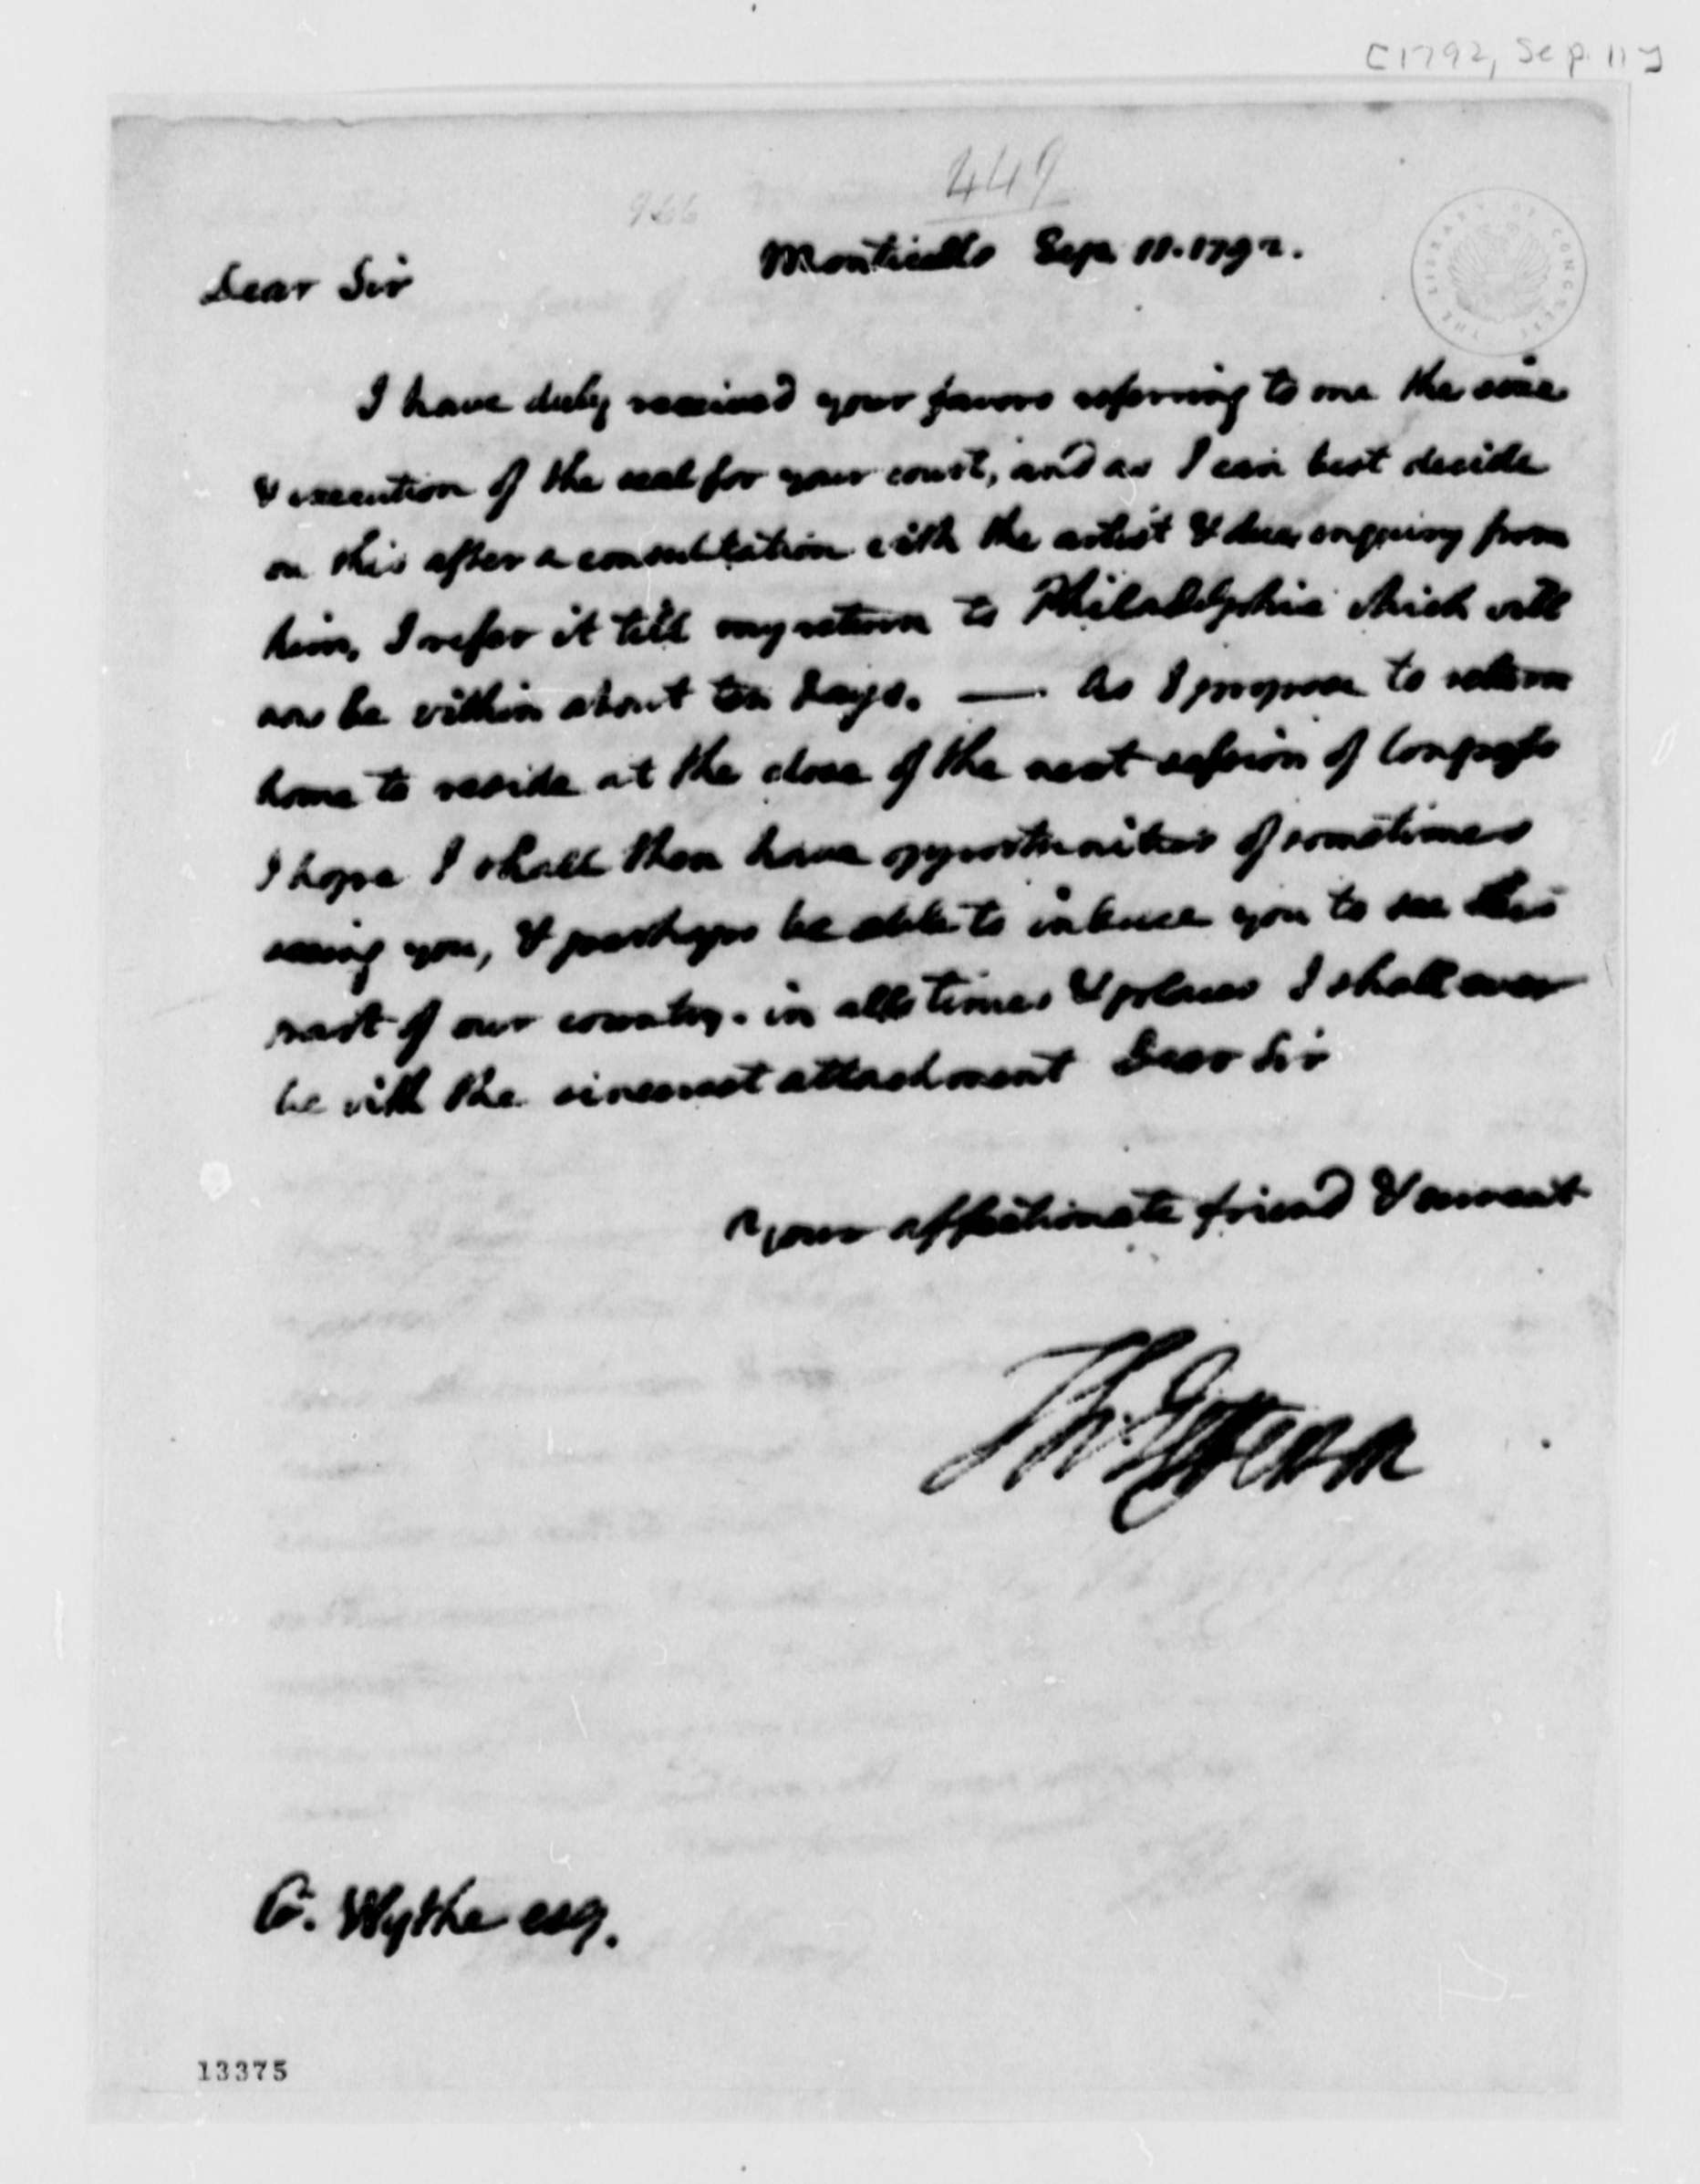 [1792, Sep. 11]
449
966
Monticello Sep. 11. 1792.
Dear Sir
I have duly received your favors referring to me the size
& execution of the seal for your court, and as I can best decide
on this after a consultation with the artist & due enquiry from
him, I refer it till my return to Philadelphia which will
now be within about ten days. — As I propose to return
home to reside at the close of the next session of Congress
I hope I shall then have opportunities of sometimes
seeing you, & perhaps be able to induce you to see this
part of our country. in all times & places I shall ever
be with the sincerest attachment Dear Sir
Your affectionate friend & servant
Th: Jefferson
G. Wythe esq.
13375
THE LIBRARY OF CONGRESS